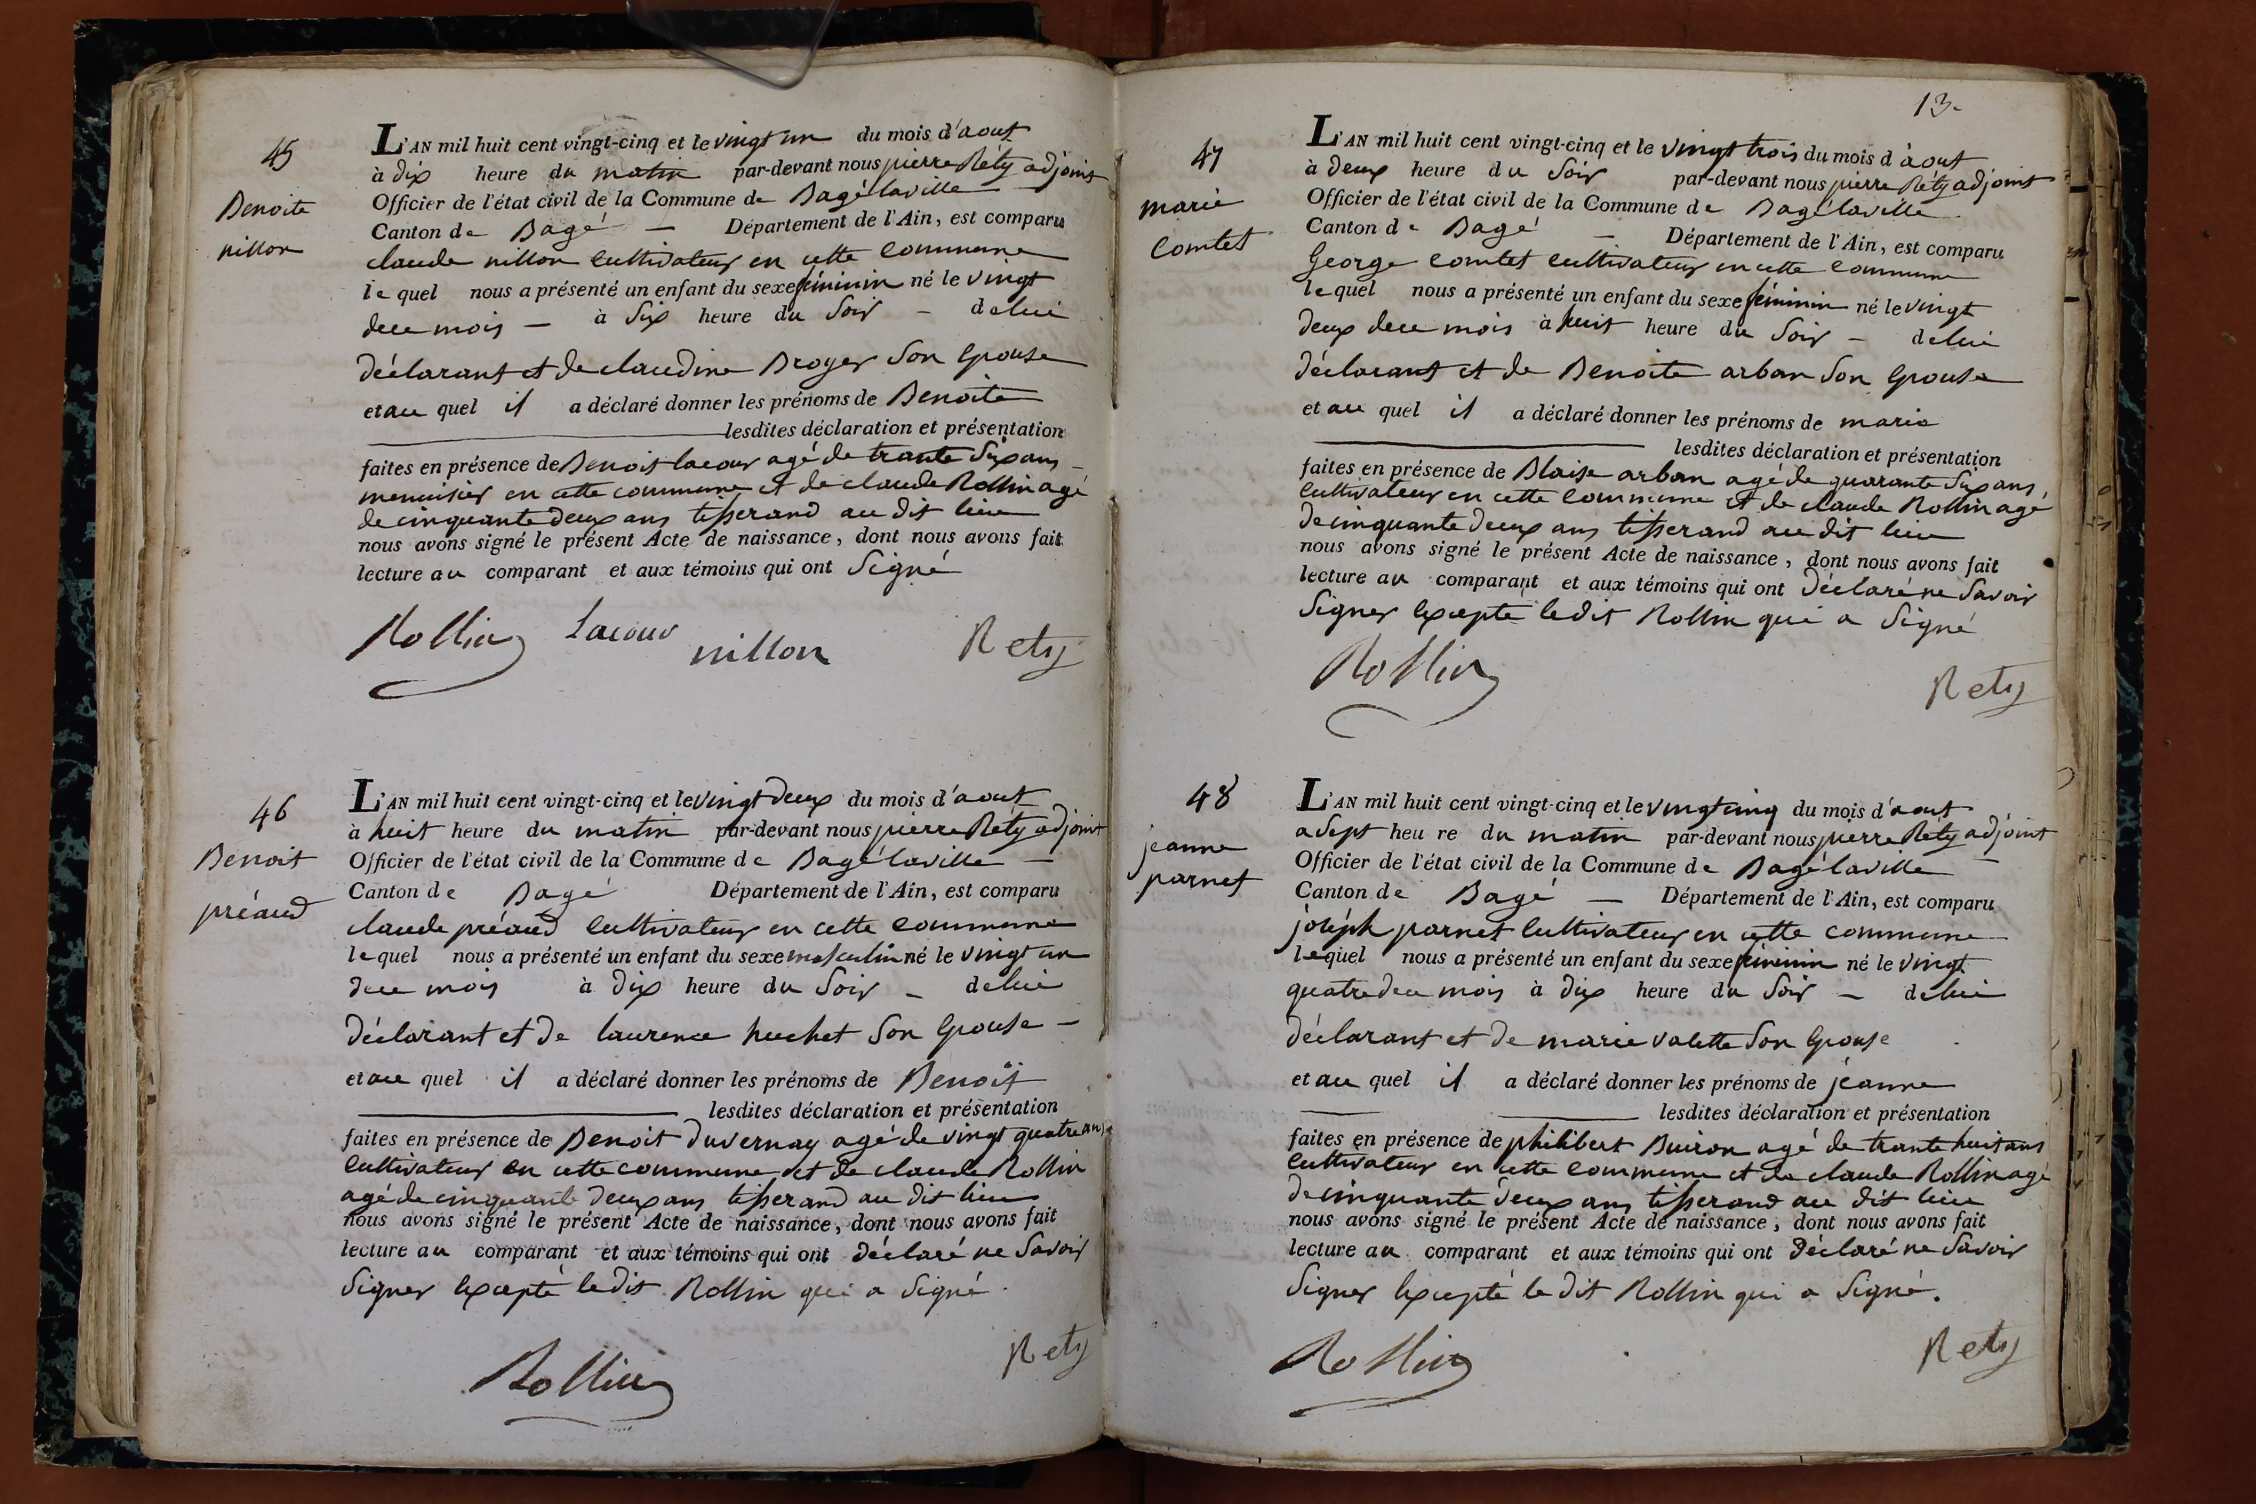 45
Benoite
nillon
L'AN mil huit cent vingt-cinq et le vingt un du mois d'aout
à dix heure du matin par-devant nous pierre Réty adjoint
Officier de l'état civil de la Commune de Bagé laville
Canton de Bagé — Département de l'Ain, est comparu
claude nillon cultivateur en cette commune
le quel nous a présenté un enfant du sexe féminin né le vingt
de ce mois — à six heure du soir — de lui
déclarant et de claudine Broyer son epouse
et au quel il a déclaré donner les prénoms de Benoite
lesdites déclaration et présentation
faites en présence de Benoit lacour agé de trante six ans
menuisier en cette commune et de claude Rollin agé
de cinquante deux ans tisserand au dit lieu
nous avons signé le présent Acte de naissance, dont nous avons fait
lecture au comparant et aux témoins qui ont signé
Rollin Lacour nillon Rety
46
Benoit
préaud
L'AN mil huit cent vingt-cinq et le vingt deux du mois d'aout
à huit heure du matin par-devant nous pierre Rety adjoint
Officier de l'état civil de la Commune de Bagé laville —
Canton de Bagé Département de l'Ain, est comparu
claude préaud cultivateur en cette commune
le quel nous a présenté un enfant du sexe masculin né le vingt un
de ce mois à dix heure du soir — de lui
déclarant et de laurence huchet son epouse —
et au quel il a déclaré donner les prénoms de Benoit
lesdites déclaration et présentation
faites en présence de Benoit Duvernay agé de vingt quatre ans
cultivateur en cette commune et de claude Rollin
agé de cinquante deux ans tisserand au dit lieu
nous avons signé le présent Acte de naissance, dont nous avons fait
lecture au comparant et aux témoins qui ont déclaré ne savoir
signer excepté le dit Rollin qui a signé.
Rollin Rety
13.
47
marie
Comtet
L'AN mil huit cent vingt-cinq et le vingt trois du mois d'aout
à deux heure du soir par-devant nous pierre Réty adjoint
Officier de l'état civil de la Commune de Bagé laville
Canton de Bagé — Département de l'Ain, est comparu
George comtet cultivateur en cette commune
le quel nous a présenté un enfant du sexe féminin né le vingt
deux de ce mois à huit heure du soir — de lui
déclarant et de Benoite arban son epouse
et au quel il a déclaré donner les prénoms de marie
lesdites déclaration et présentation
faites en présence de Blaise arban agé de quarante six ans,
cultivateur en cette commune et de claude Rollin agé
de cinquante deux ans tisserand au dit lieu
nous avons signé le présent Acte de naissance, dont nous avons fait
lecture au comparant et aux témoins qui ont déclaré ne savoir
signer excepté le dit Rollin qui a signé
Rollin Rety
48
jeanne
parnet
L'AN mil huit cent vingt-cinq et le vingt cinq du mois d'aout
a sept heure du matin par-devant nous pierre Rety adjoint
Officier de l'état civil de la Commune de Bagé laville —
Canton de Bagé — Département de l'Ain, est comparu
joséph parnet cultivateur en cette commune
le quel nous a présenté un enfant du sexe féminin né le vingt
quatre de ce mois à dix heure du soir — de lui
déclarant et de marie valette son epouse
et au quel il a déclaré donner les prénoms de jeanne
lesdites déclaration et présentation
faites en présence de philibert Buiron agé de trante huit ans
cultivateur en cette commune et de claude Rollin agé
de cinquante deux ans tisserand au dit lieu
nous avons signé le présent Acte de naissance, dont nous avons fait
lecture au comparant et aux témoins qui ont déclaré ne savoir
signer excepté le dit Rollin qui a signé.
Rollin Rety